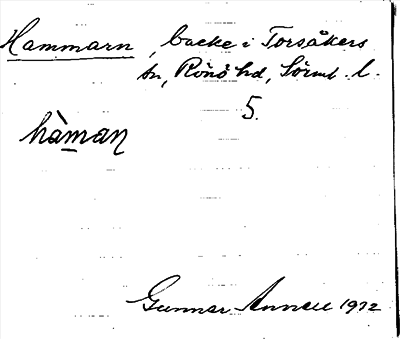 Hammarn, backe i Torsåkers
sn, Rönö hd, Sörml. l.
5.
hàman
Gunnar Annell 1932